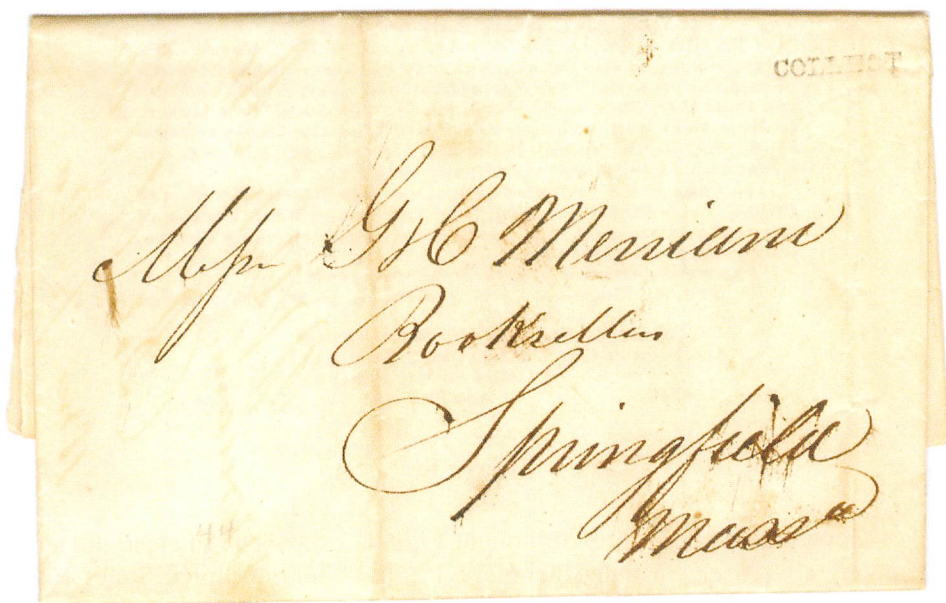 COLLECT
Messrs G & C Merriam
Booksellers
Springfield
Massa
44